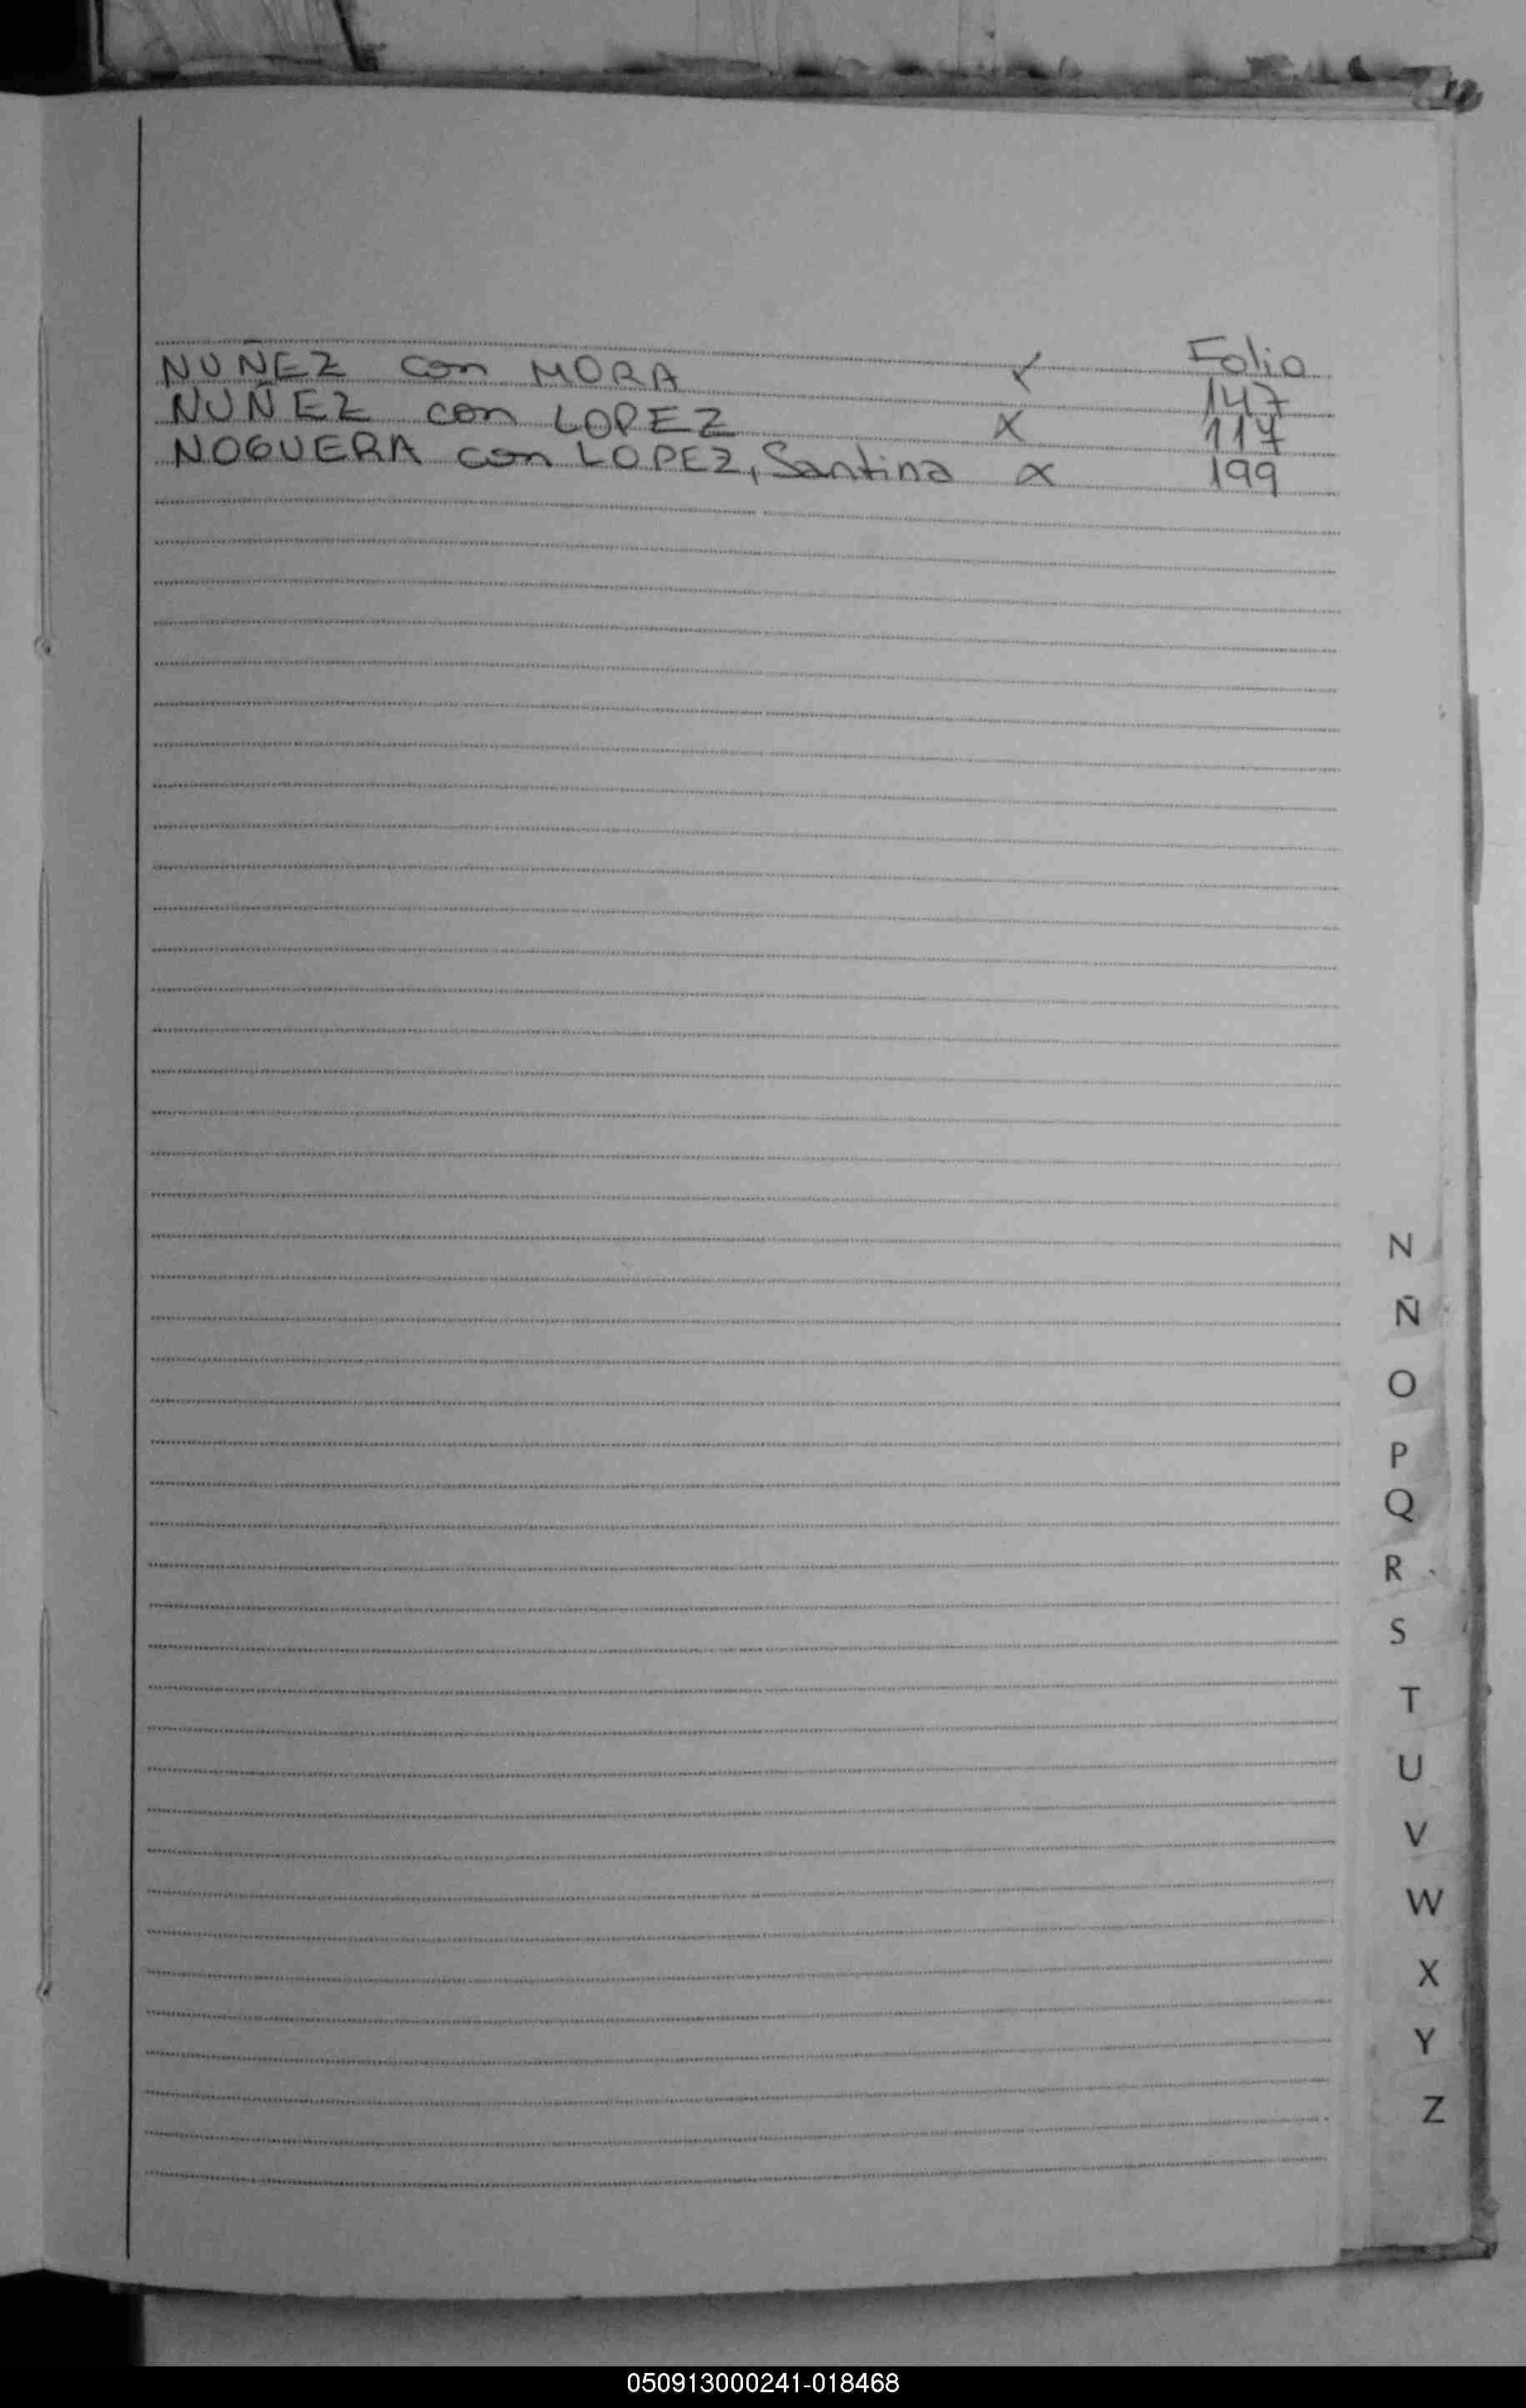 Folio
NUÑEZ con MORA ✓ 147
NUÑEZ con LOPEZ X 117
NOGUERA con LOPEZ, Santina X 199
N
Ñ
O
P
Q
R
S
T
U
V
W
X
Y
Z
050913000241-018468